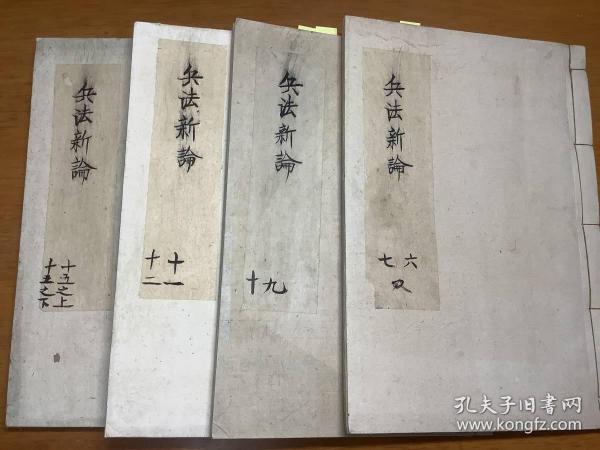 兵法新論
六
七
兵法新論
九
十
兵法新論
十一
十二
兵法新論
十五之上
十五之下
孔夫子旧書网
www.kongfz.com